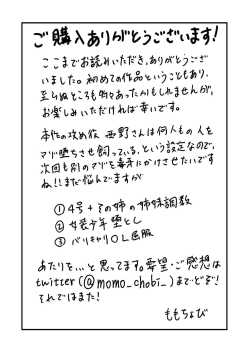 ご購入ありがとうございます!
ここまでお読みいただき、ありがとうござ
いました。初めての作品ということもあり、
至らぬところも多々あったかもしれませんが、
お楽しみいただければ幸いです。
本作の攻め役 西野さんは何人もの人を
マゾ堕ちさせ飼っている、という設定なので、
次回も別のマゾを毒牙にかけさせたいです
ね!!まだ悩んでますが
①4号+その姉の姉妹調教
②女装少年堕とし
③バリキャリOL屈服
あたりを…と思ってます。要望・ご感想は
twitter(@momo_chobi_)までどうぞ!
それではまた!
ももちょび